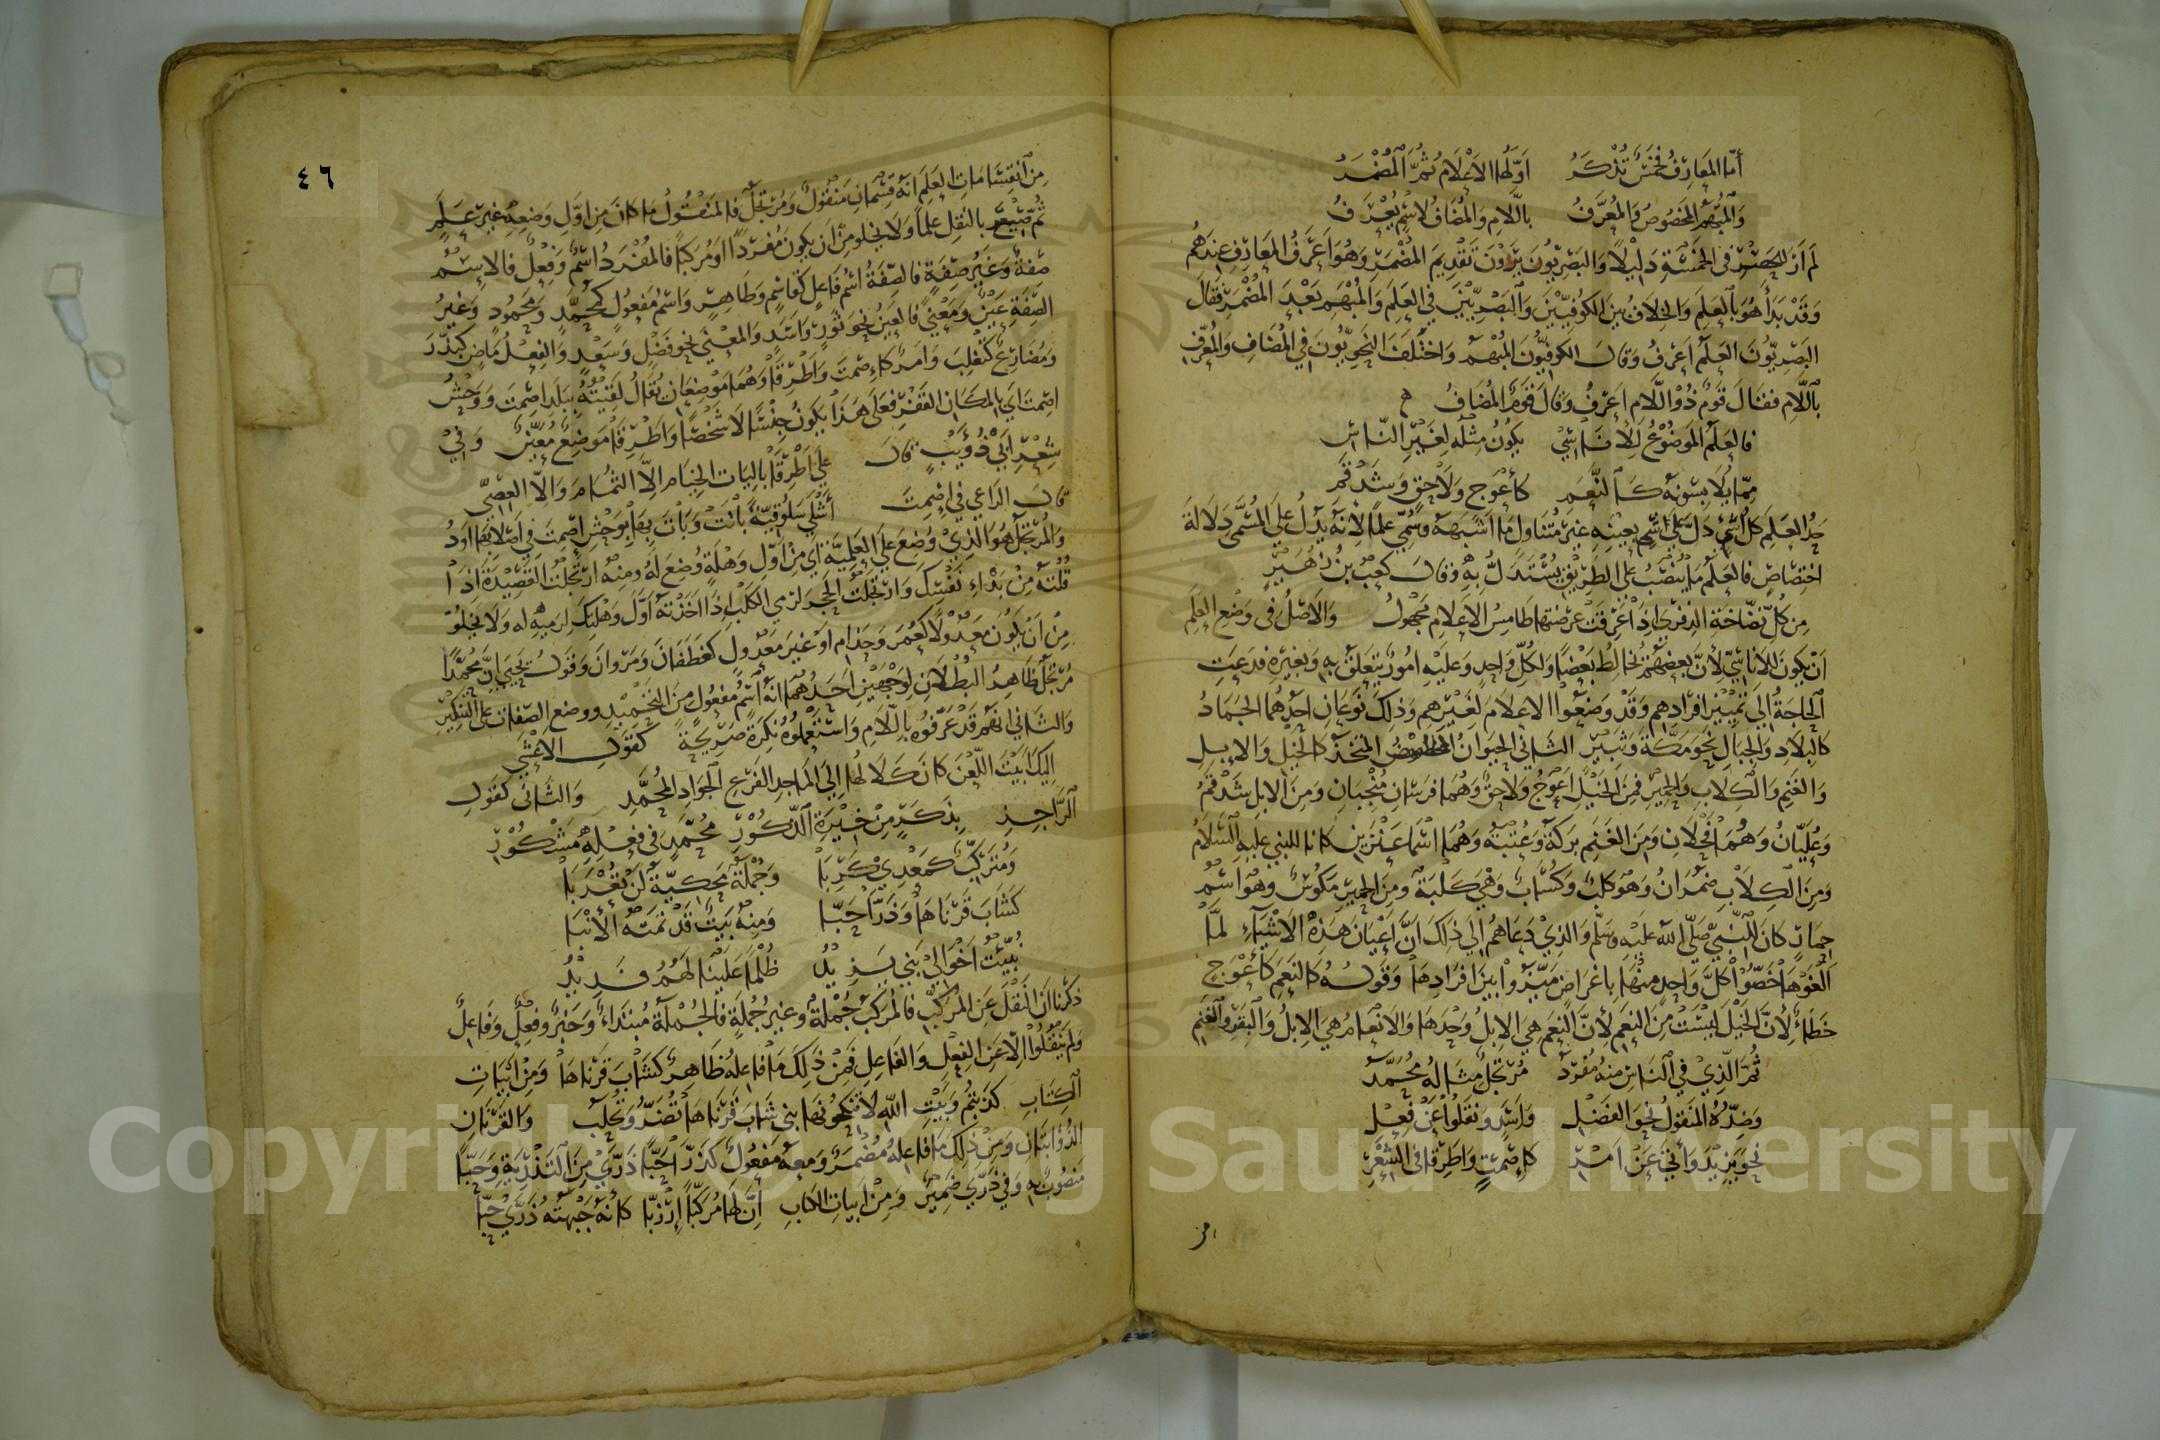 أما المعارف فخمس تذكر اولها الاعلام ثم المضمر
والمبهم المخصوص والمعرف باللام والمضاف لاسم يعرف
لم ار للحصر في الخمسة دليلا والبصريون يرون تقديم المضمر وهو اعرف المعارف عندهم
وقد بدأ هو بالعلم والخلاف بين الكوفيين والبصريين في العلم والمبهم بعد المضمر فقال
البصريون العلم اعرف وقال الكوفيون المبهم واختلف النحويون في المضاف والمعرف
باللام فقال قوم ذو اللام اعرف وقال قوم المضاف
فالعلم الموضوع للاناسي يكون مثله لغير الناس
مما يلابسونه كالنعم كأعوج ولاحق وشدقم
حد العلم كل اسم دل على اسم بعينه غير متناول ما اشبهه وسمي علما لانه يدل على المسمى دلالة
اختصاص فالعلم ما ينتصب على الطريق يستدل به وقال كعب بن زهير
من كل نضاخة الذفرى اذا عرقت عرضتها طامس الاعلام مجهول والاصل في وضع العلم
ان يكون للاناسي لأن بعضهم يخالط بعضا ولكل واحد وعليه امور يتعلق به وبغيره فدعت
الحاجة الى تمييز افرادهم وقد وضعوا الاعلام لغيرهم وذلك نوعان احدهما الجماد
كالبلاد والجبال نحو مكة وثبير الثاني الحيوان المتخذ كالخيل والإبل
والغنم والكلاب والحمير فمن الخيل اعوج ولاحق وهما فرسان منجبان ومن الابل شدقم
وعليان وهما فحلان ومن الغنم بركة وعتبة وهما اسما عنزين كانا للنبي عليه السلام
ومن الكلاب ضمران وهو كلب وكساب وهي كلبة ومن الحمير وهو اسم
حمار كان للنبي صلى الله عليه وسلم والذي دعاهم الى ذلك ان اعيان هذه الاشياء لما
الفوها خصوا كل واحد منها باغراض ميزوا بين افرادها وقوله كالنعم كأعوج
خطاء لأن الخيل ليست من النعم لأن النعم هي الابل وحدها والانعام هي الابل والبقر والغنم
ثم الذي في الناس منه مفرد مرتجل مثاله محمد
وضده المنقول نحو الفضل واسد ونقلوا عن فعل
نحو يزيد وأتى عن امر كاصمت واطرقا في الشعر
من
٤٦
من انقسامات العلم انه قسمان منقول ومرتجل فالمنقول ما كان من اول وضعه غير علم
ثم صيغ بالنقل علما ولا يخلو من ان يكون مفردا او مركبا فالمفرد اسم وفعل فالاسم
صفة وغير صفة فالصفة اسم فاعل كقاسم وطاهر واسم مفعول كمحمد ومحمود وغير
الصفة عين ومعنى فالعين نحو ثور واسد والمعنى نحو فضل وسعد والفعل ماض كبذر
ومضارع كتغلب وامر كاصمت واطرقا وهما موضعان يقال لقيته ببلد اصمت ووحش
اصمت اي بالمكان القفر فعلى هذا يكون جنسا لا شخصا واطرقا موضع معين وفي
شعر ابي ذؤيب قال على اطرقا باليات الخيام الا الثمام والا العصي
قال الراعي في اصمت أشلى سلوقية باتت وبات بها بوحش اصمت في اصلابها اود
والمرتجل هو الذي وضع على العلمية اي من اول وهلة وضع له ومنه ارتجلت القصيدة اذا
قلتها من بداء نفسك وارتجلت الحجر لرمي الكلب اذا اخذته اول وهلتك لرميه له ولا يخلو
من ان يكون معدولا كعمر وحذام او غير معدول كغطفان ومروان وقول يحيى ان محمدا
مرتجل ظاهر البطلان لوجهين احدهما انه اسم مفعول من التحميد ووضع الصفات على التنكير
والثاني انهم قد عرفوه باللام واستعملوه نكرة صريحة كقول الاعشى
اليك ابيت اللعن كان كلالها الى الماجد الفرع الجواد المحمد والثاني كقول
الراجز بذكر من خيرة الذكور محمد في فعله مشكور
ومتركب كمعدي كربا وجملة محكية لن تعربا
كشاب قرناها وذرا حبا ومنه بيت قد نمته الانبا
نبئت اخوالي بني يزيد ظلما علينا لهم فديد
ذكرنا ان النقل عن المركب فالمركب جملة وغير جملة فالجملة مبتداء وخبر وفعل وفاعل
ولم ينقلوا الا عن الفعل والفاعل فمن ذلك ما فاعله ظاهر كشاب قرناها ومن ابيات
الكتاب كذبتم وبيت الله لا تنكحونها بني شاب قرناها تصر وتحلب والقرنان
الذؤابتان ومن ذلك ما فاعله مضمر ومعه مفعول كذرا حبا ذري من التذرية وحبا
منصوب به وفي ذرى ضمير ومن ابيات الكتاب ان لها مركبا ارزبا كانه جبهته ذرى حبا
Copyright © King Saud University